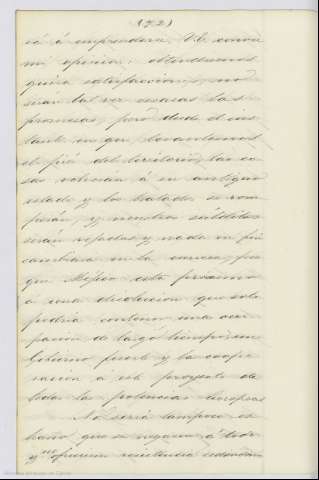 (721)
vá á emprender. V.E. conoce
mi opinion; obtendremos
quizá satisfaccion, no
serán tal vez escasas las
promesas, pero desde el ins-
tante en que levantemos
el pié del territorio, las co-
sas volverán á su antiguo
estado y los tratados se rom-
perán, y nuestros súbditos
serán vejados y nada en fin
cambiará en la esencia, por-
que Méjico está próximo
á una disolucion que solo
podria contener una ocu-
pacion de largo tiempo, un
Gobierno fuerte y la coope-
racion á este proyecto de
todas las potencias europeas
No seria tampoco es-
traño que se negaran á todo
y nos ofrecieran resistencia